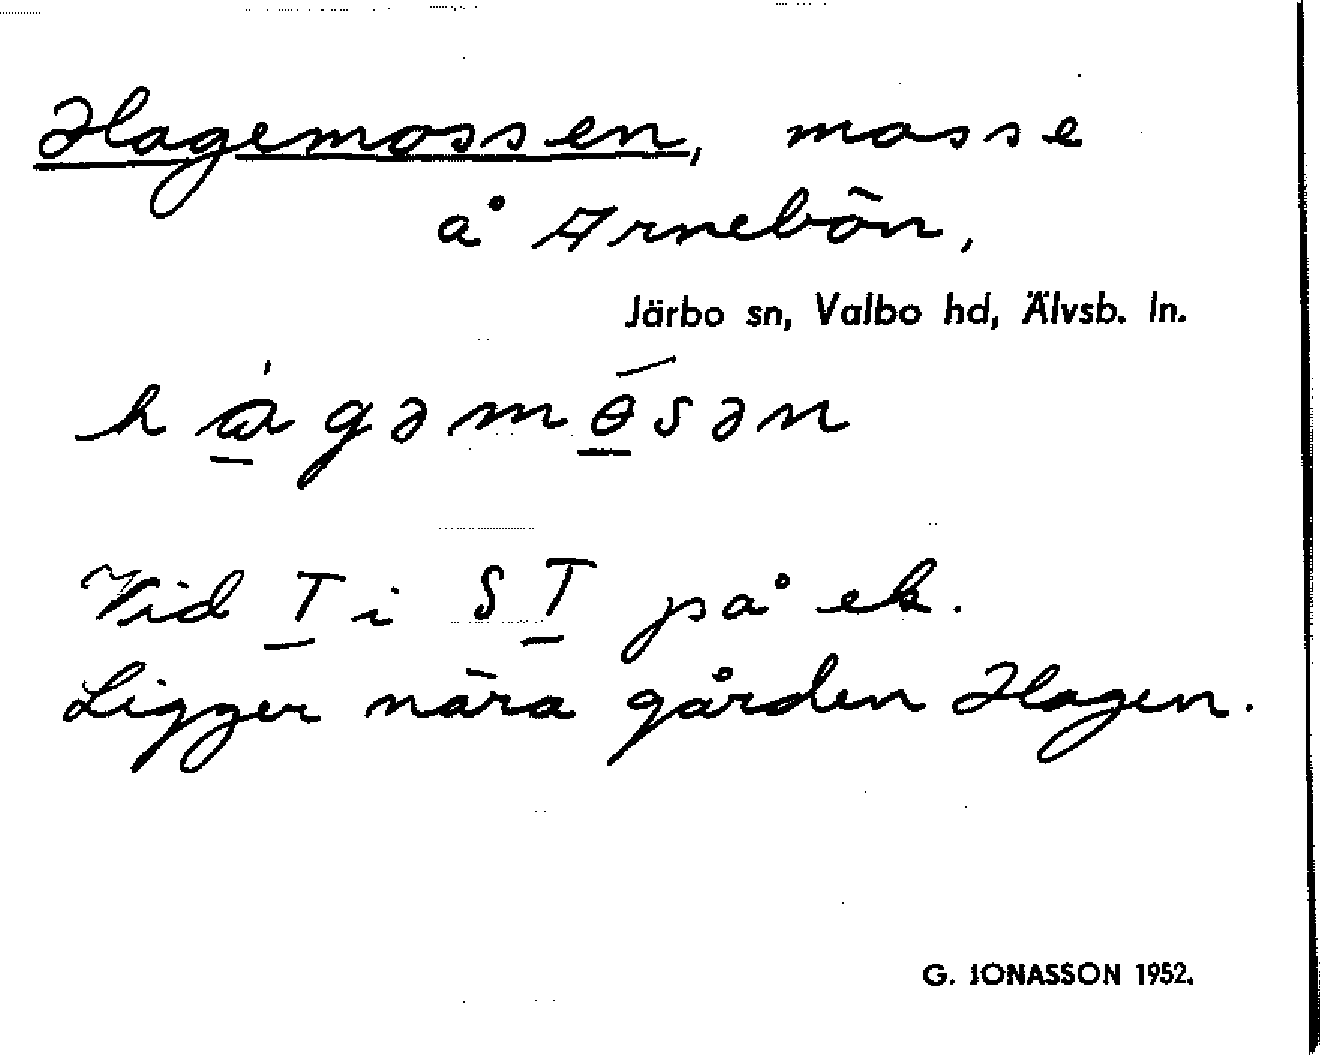 Hagemossen, mosse
å Arnebön,
Järbo sn, Valbo hd, Älvsb. ln.
hágəmɵ́sən
Vid T i ST på ek.
Ligger nära gården Hagen.
G. JONASSON 1952.